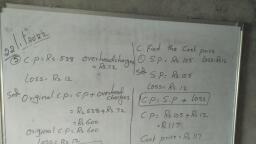 22/1/2022
③ C.P = Rs 528 overheadcharges = Rs 72
Loss = Rs 12
Sol Original C.P = S.P + overhead charges
= Rs 528 + Rs 72
= Rs 600
Original C.P = Rs 600
Loss = Rs 12
C. Find the Cost price
① S.P = Rs 105 loss = Rs 12
Sol S.P = Rs 105
Loss = Rs 12
C.P = S.P + loss
C.P = Rs 105 + Rs 12
= Rs 117
Cost price = Rs 117